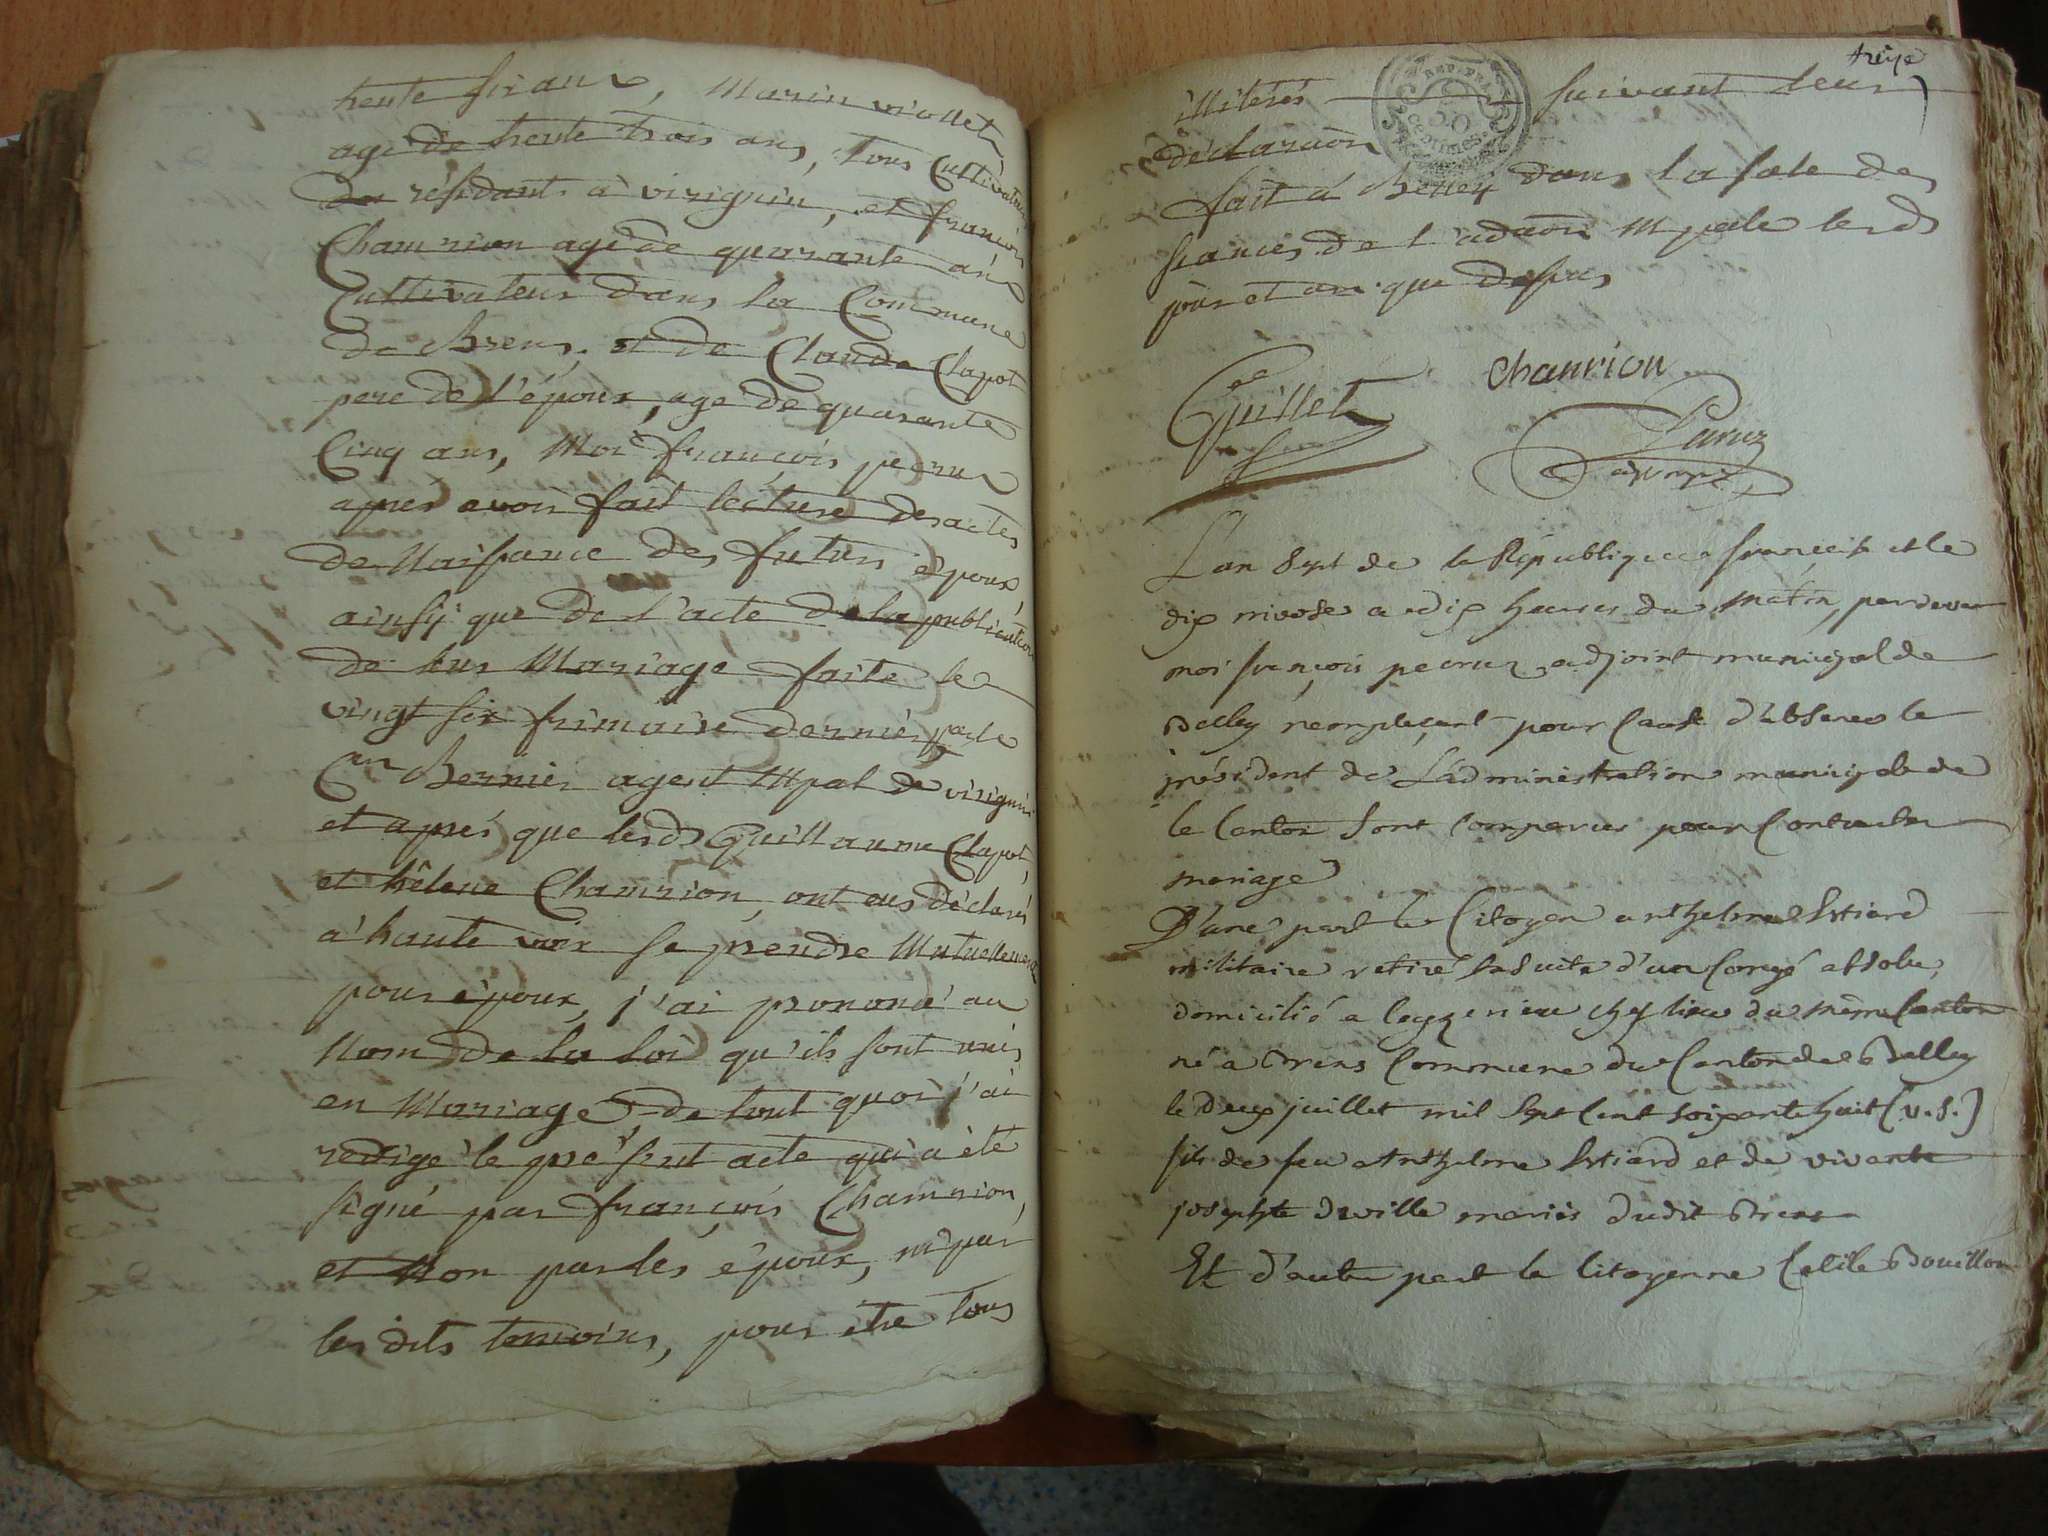 trente six ans, Marin viollet
agé de trente trois ans, tous Cultivateurs
de résidants à virignin, et françois
Chamrion agé de quarante ans
Cultivateur dans la Commune
de Brens, et de Claude Clapot
pere de l'époux, age de quarante
Cinq ans, Moi françois pecruz
aprés avoir fait lecture des actes
de Naissance des futurs époux
ainsy que de l'acte de la publication
de leur Mariage faite le
vingt six frimaire dernier par le
Cen Bernier agent Mpal de virignin
et aprés que lesds Guillaume Clapot,
et hêlene Chamrion, ont eus déclarés
a haute voix se prendre Mutuellement
pour époux, j'ai prononcé au
Nom de la loi qu'ils sont unis
en Mariage, de tout quoi j'ai
redigé le présent acte qui a été
signé par françois Chamrion,
et Non par les époux, ni par
les dits temoins, pour être tous
treize
illiterés suivant leur
déclaraõn
REP. FRA.
50
CENTIMES
fait á Belley dans la sale des
séances de l'adaõn Mpale lesds
jour et an que dessus
Guillet
Chanrion
Pecruz
adjoint
L'an Sept de la République francaise et le
dix nivose a dix heures du matin, pardevant
moi françois pecruz adjoint municipal de
Belley remplaçant pour Cause d'absence le
président de L'administration municipale de
le Canton Sont Comparus pour Contracter
mariage
D'une part le Citoyen anthelme Estiard
militaire retiré Ensuite d'un Congé absolu,
domicilié a Ceyzerieu chef lieu du même Canton
né a Brens Commune du Canton de Belley
le deux juillet mil Sept Cent soixante huit (v. s.)
fils de feu Anthelme Estiard et de vivante
josephte deville mariés dudit Brens
Et d'autre part la Citoyenne Cécile Bouillon